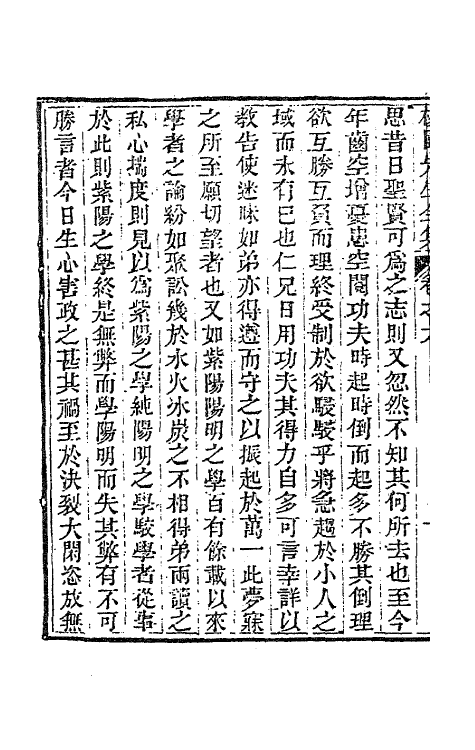 思昔日聖賢可爲之志則又忽然不知其何所去也至今
年齒空增憂患空閱功夫時起時倒而起多不勝其倒理
欲互勝互負而理終受制於欲駸駸乎將急趨於小人之
域而未有已也仁兄日用功夫其得力自多可言幸詳以
教告使迷昧如弟亦得遵而守之以振起於萬一此夢寐
之所至願切望者也又如紫陽陽明之學百有餘載以來
學者之論紛如聚訟幾於水火冰炭之不相得弟兩讀之
私心揣度則見以爲紫陽之學純陽明之學駁學者從事
於此則紫陽之學終是無弊而學陽明而失其弊有不可
勝言者今日生心害政之甚其禍至於決裂大閑恣放無